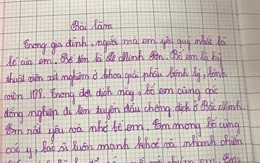 Bài làm
Trong gia đình, người mà em yêu quý nhất là
bố của em. Bố tên là Minh Sơn. Bố em là kỹ
thuật viên xét nghiệm ở khoa giải phẫu bệnh lý, bệnh
viện 108. Trong đợt dịch này, bố em cùng các
đồng nghiệp đi lên tuyến đầu chống dịch ở Bắc Ninh.
Em rất yêu và nhớ bố em. Em mong bố cùng
các y, bác sĩ luôn mạnh khoẻ và nhanh chiến